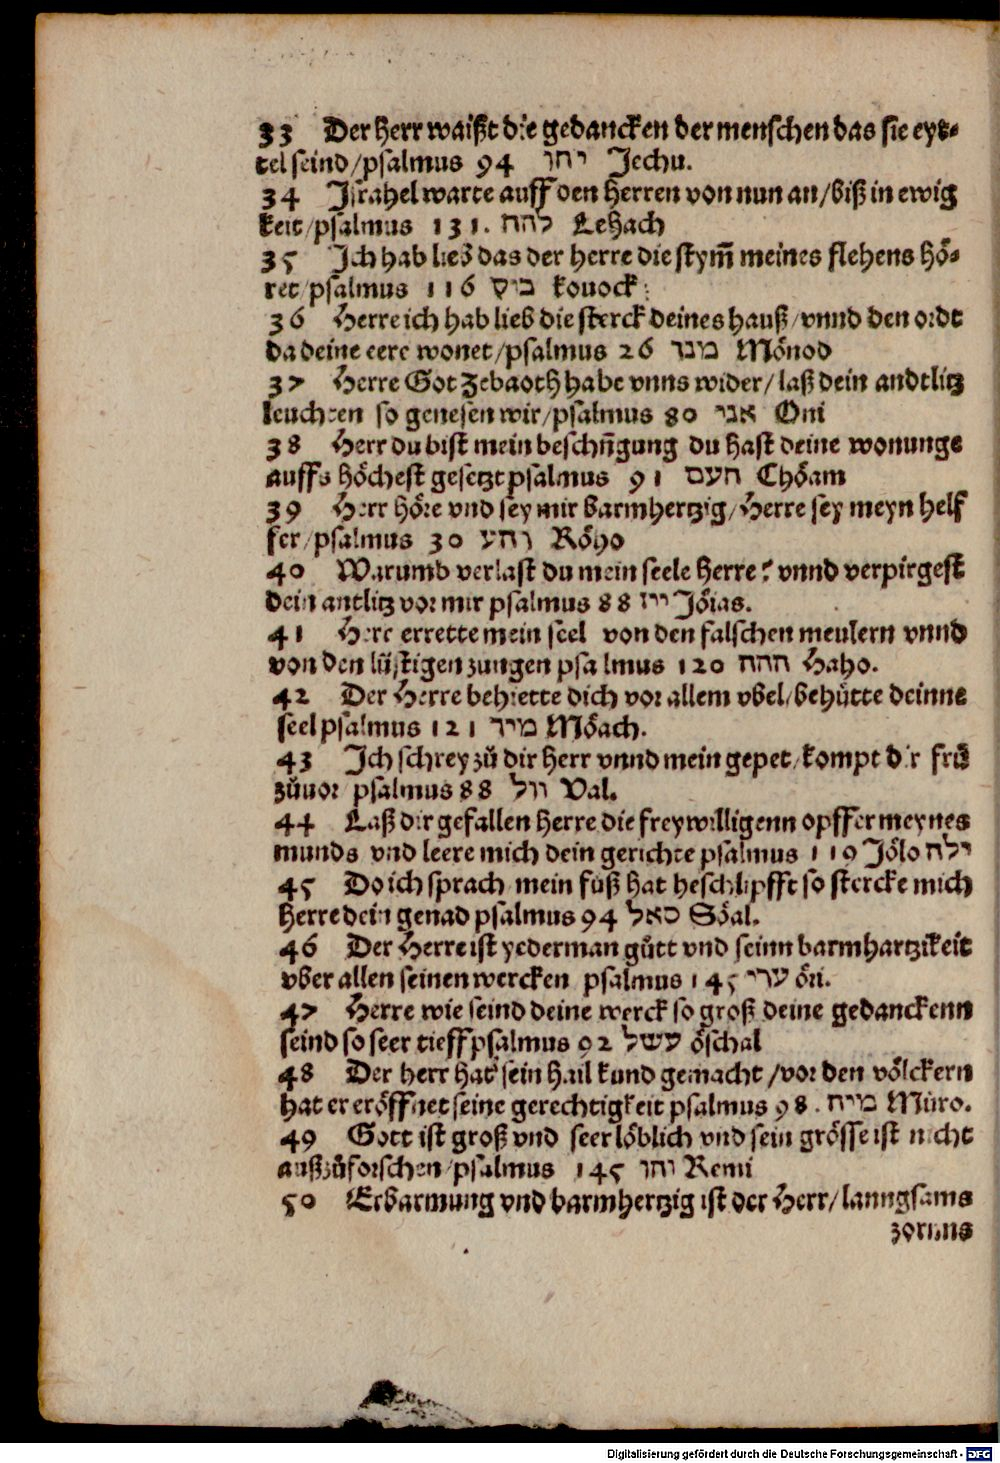 33 Der Herr waißt die gedancken der menschen das sie eyt⸗
tel seind/psalmus 94 יחו Jechu.
34 Jsrahel warte auff den Herren von nun an/biß in ewig
keit/psalmus 131. להח Lehach
35 Jch hab lieb das der herre die stym̃ meines flehens hö⸗
ret/psalmus 116 כוק kouock:
36 Herre ich hab lieb die sterck deines hauß/vnnd den ordt
da deine eere wonet/psalmus 26 מנד Mönod
37 Herre Got Zebaoth habe vnns wider/laß dein andtlitz
leuchten so genesen wir/psalmus 80 אני Oni
38 Herr du bist mein beschñgung du hast deine wonunge
auffs höchest gesetzt psalmus 91 חעם Chöam
39 Herr höre vnd sey mir barmhertzig/Herre sey meyn helf
fer/psalmus 30 רהע Röho
40 Warumb verlast du mein seele Herre? vnnd verpirgest
dein antlitz vor mir psalmus 88 ייז Jöias.
41 Here errette mein seel von den falschen meulern vnnd
von den lüstigen zungen psalmus 120 ההה Haho.
42 Der Herre behiette dich vor allem vbel/behütte deinne
seel psalmus 121 מיך Möach.
43 Jch schrey zů dir Herr vnnd mein gepet/kompt dir frů
zůuor psalmus 88 וול Val.
44 Laß dir gefallen Herre die freywilligenn opffer meynes
munds vnd leere mich dein gerichte psalmus 119 Jölo ילה
45 Do ich sprach mein fůß hat heschlipfft so stercke mich
Herre dein genad psalmus 94 סאל Söal.
46 Der Herre ist yederman gůtt vnd seinn barmhartzikeit
vber allen seinen wercken psalmus 145 ערי öri.
47 Herre wie seind deine werck so groß deine gedanckenn
seind so seer tieff psalmus 92 עשל öschal
48 Der herr hat sein hail kund gemacht/vor den völckern
hat er eröffnet seine gerechtigkeit psalmus 98. מיה Müro.
49 Gott ist groß vnd seer löblich vnd sein grösse ist nicht
außzůforschen/psalmus 145 והו Remi
50 Erbarmung vnd barmhertzig ist der Herr/lanngsams
zoruns
Digitalisierung gefördert durch die Deutsche Forschungsgemeinschaft - DFG